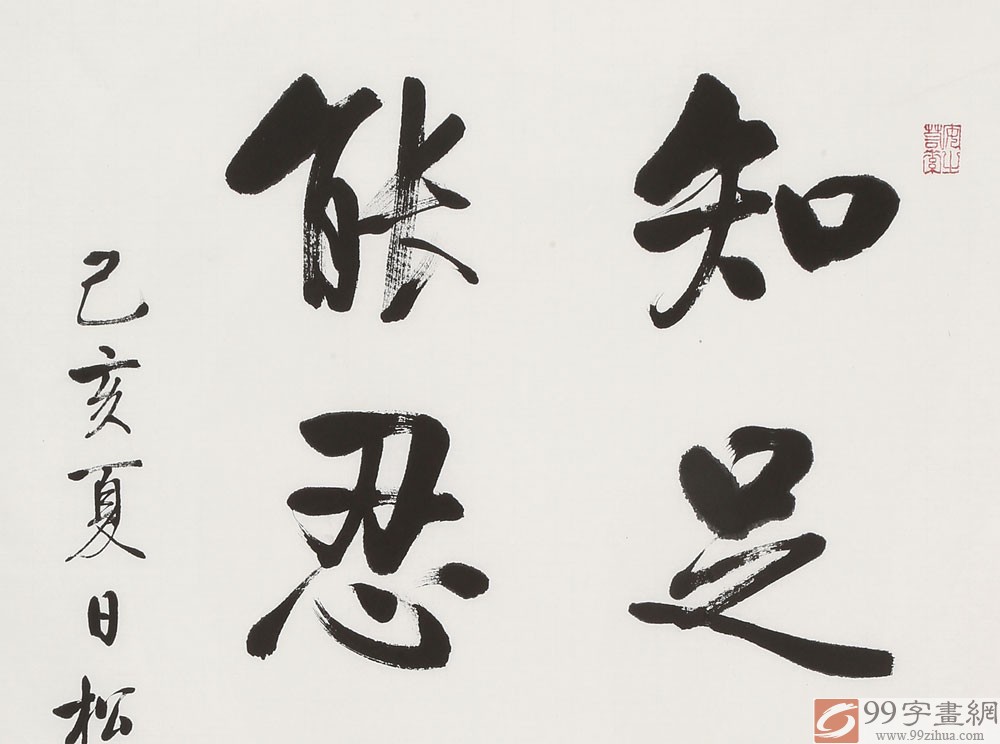 知足
能忍
己亥夏日松
99字畫網
www.99zihua.com